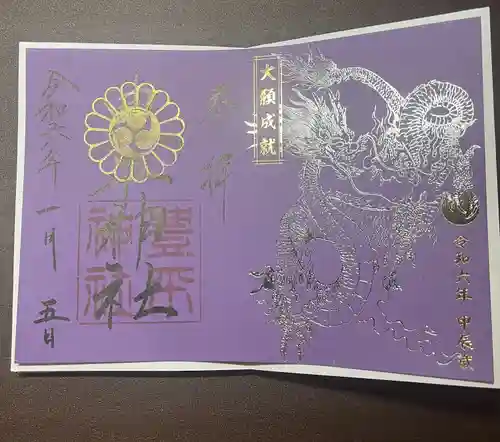 奉拝
豊平
神社
令和六年
一月
五日
大願成就
令和六年 甲辰歳